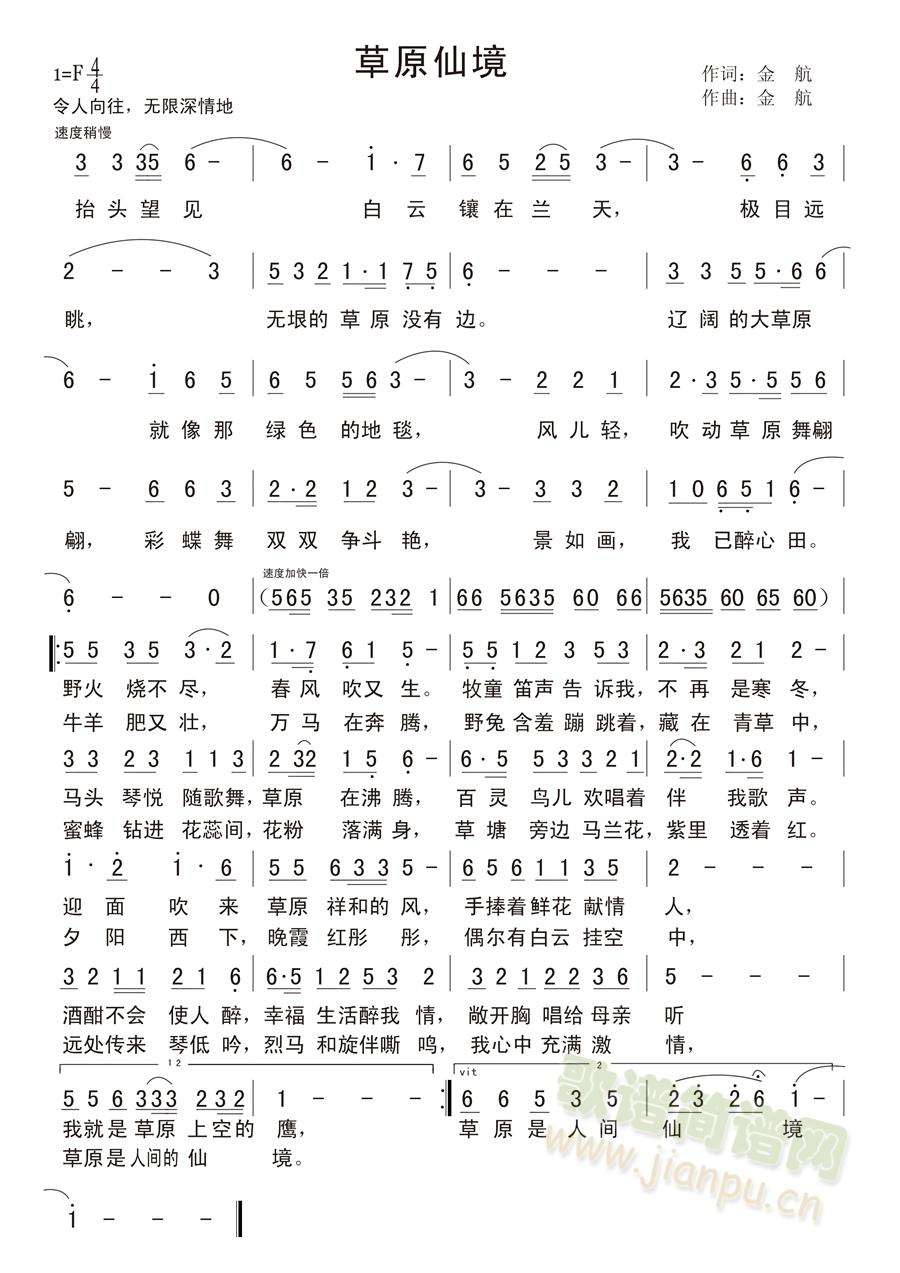 草原仙境
1=F 4/4
作词：金 航
作曲：金 航
令人向往，无限深情地
速度稍慢
3 3 35 6 - | 6 - 1 · 7 | 6 5 25 3 - | 3 - 6 6 3 |
抬头望见 白云 镶在兰天， 极目远
2 - - 3 | 5 3 2 1·1 7 5 | 6 - - - | 3 3 5 5·6 6 |
眺， 无垠的草原没有边。 辽阔的大草原
6 - 1 6 5 | 6 5 56 3 - | 3 - 2 2 1 | 2·3 5·5 56 |
就像那 绿色 的地毯， 风儿轻， 吹动草原舞翩
5 - 6 6 3 | 2·2 12 3 - | 3 - 3 3 2 | 10 651 6 - |
翩， 彩蝶舞 双双争斗艳， 景如画， 我 已醉心田。
速度加快一倍
6 - - 0 | （565 35 232 1 | 66 5635 60 66 | 5635 60 65 60） |
55 35 3·2 | 1·7 61 5 - | 55 12 35 35 | 2·3 21 2 - |
野火 烧不尽， 春风 吹又生。 牧童笛声告诉我， 不再 是寒冬，
牛羊 肥又壮， 万马 在奔腾， 野兔含羞蹦跳着， 藏在 青草中，
33 23 113 | 2 32 15 6 - | 6·5 53 321 | 2·2 1·6 1 - |
马头 琴悦 随歌舞， 草原 在沸腾， 百灵 鸟儿 欢唱着 伴 我歌声。
蜜蜂 钻进 花蕊间， 花粉 落满身， 草塘 旁边 马兰花， 紫里 透着红。
1 · 2 1 · 6 | 55 633 5 - | 65 61 13 5 | 2 - - - |
迎面 吹来 草原 祥和的风， 手捧着鲜花 献情 人，
夕阳 西下， 晚霞 红彤彤， 偶尔有白云 挂空 中，
32 11 21 6 | 6·5 1253 2 | 321 22 36 | 5 - - - |
酒酣不会 使人醉， 幸福 生活醉我情， 敞开胸 唱给母亲 听
远处传来 琴低吟， 烈马 和旋伴嘶鸣， 我心中 充满激 情，
12 vit 2
55 6 333 232 | 1 - - :| 6 6 5 3 5 | 2 3 2 6 1 - |
我就是草原 上空的 鹰， 草原是人间 仙 境
草原是人间的 仙 境。
1 - - -
歌谱简谱网
www.jianpu.cn